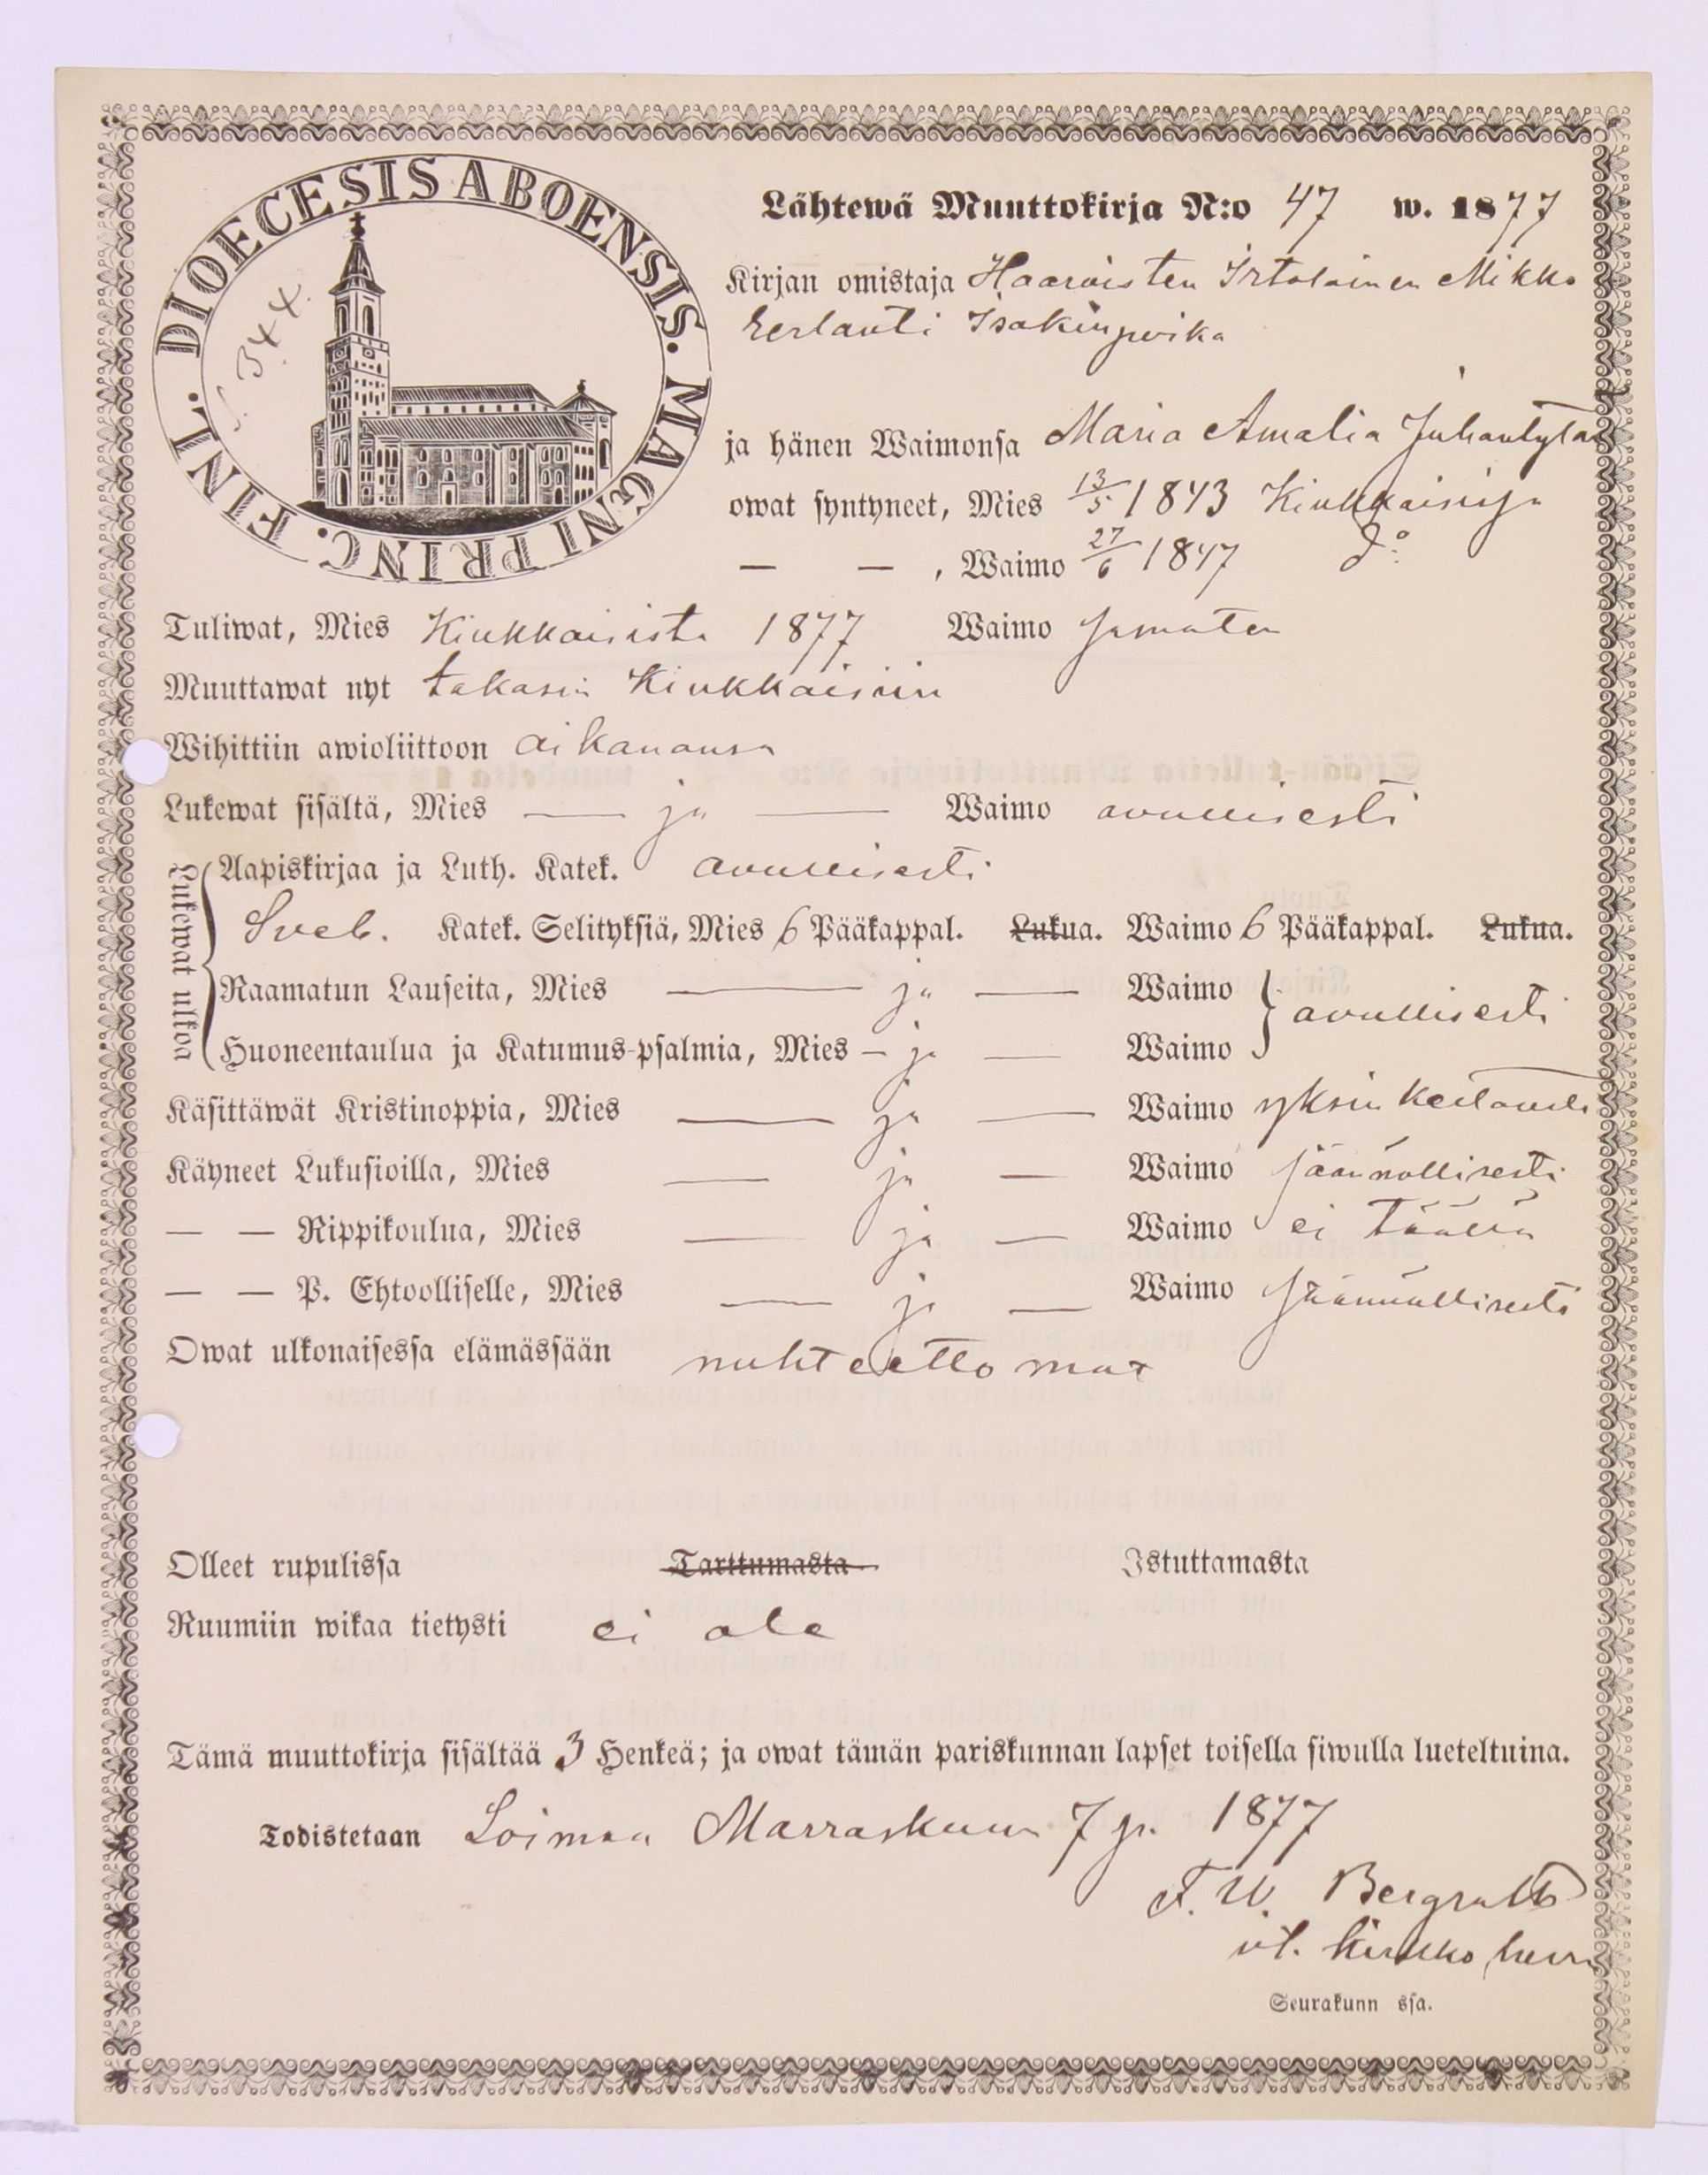 DIOECESIS ABOENSIS. MAGNI PRINC. FINL.
344.
Lähtewä Muuttokirja N:o 47 w. 1877
Kirjan omistaja Haaroisten Irtolainen Mikko
Eerlanti Isakinpoika
ja hänen Waimonsa Maria Amalia Juhantytar
owat syntyneet, Mies 13/5 1843 Kiukkaisisja
— — , Waimo 27/6 1847 do:
Tuliwat, Mies Kiukkaisista 1877 Waimo samaten
Muuttawat nyt takasin Kiukkaisiin
Wihittiin awioliittoon aikanansa
Lukewat sisältä, Mies — ja — Waimo avullisesti
Lukewat ulkoa
Aapiskirjaa ja Luth. Katek. avullisesti
Sveb. Katek. Selityksiä, Mies 6 Pääkappal. Lukua. Waimo 6 Pääkappal. Lukua.
Raamatun Lauseita, Mies — ja — Waimo
avullisesti
Huoneentaulua ja Katumus-psalmia, Mies — ja — Waimo
Käsittäwät Kristinoppia, Mies — ja — Waimo yksinkertaisesti
Käyneet Lukusioilla, Mies — ja — Waimo säännöllisesti
— — Rippikoulua, Mies — ja — Waimo ei täällä
— — P. Ehtoolliselle, Mies — ja — Waimo säännöllisesti
Owat ulkonaisessa elämässään nuhteettomat
Olleet rupulissa Tarttumasta Istuttamasta
Ruumiin wikaa tietysti ei ole
Tämä muuttokirja sisältää 3 Henkeä; ja owat tämän pariskunnan lapset toisella siwulla lueteltuina.
Todistetaan Loimaa Marraskuun 7 p. 1877
F. W. Bergroth
vt. Kirkkoherra
Seurakunn ssa.